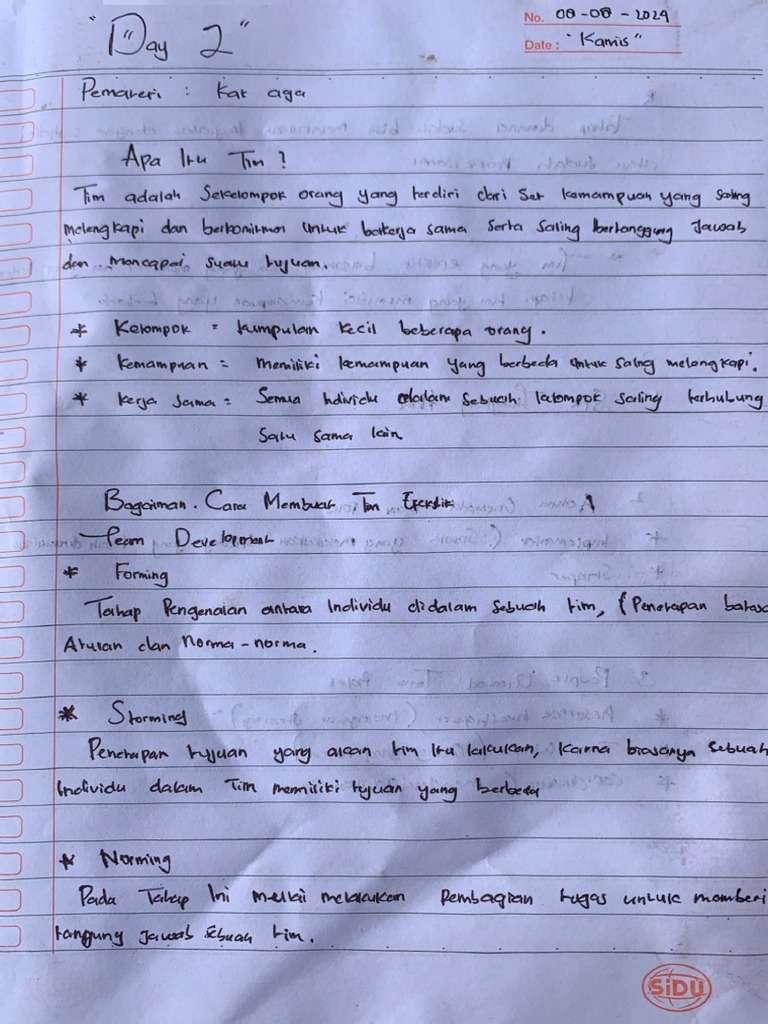 "Day 2"
No. 08-08-2024
Date: "Kamis"
Pemateri : Kak aga
Apa Itu Tim?
Tim adalah Sekelompok orang yang terdiri dari Set kemampuan yang saling
melengkapi dan berkomitmen untuk bekerja sama serta saling bertanggung Jawab
dan Mencapai suatu tujuan.
* Kelompok = kumpulan kecil beberapa orang.
* Kemampuan = memiliki kemampuan yang berbeda untuk saling melengkapi.
* Kerja sama = Semua Individu dalam sebuah kelompok saling terhubung
satu sama lain
Bagaiman. Cara Membuat Tim Efektif
Team Development
* Forming
Tahap Pengenalan antara Individu didalam sebuah tim, (Penetapan batasa
Aturan dan Norma-norma.
* Storming
Penetapan tujuan yang akan tim itu lakukan, Karna biasanya sebuah
Individu dalam Tim memiliki tujuan yang berbeda
* Norming
Pada Tahap Ini mulai melakukan Pembagian tugas untuk memberi
tanggung Jawab sebuah tim.
SiDU